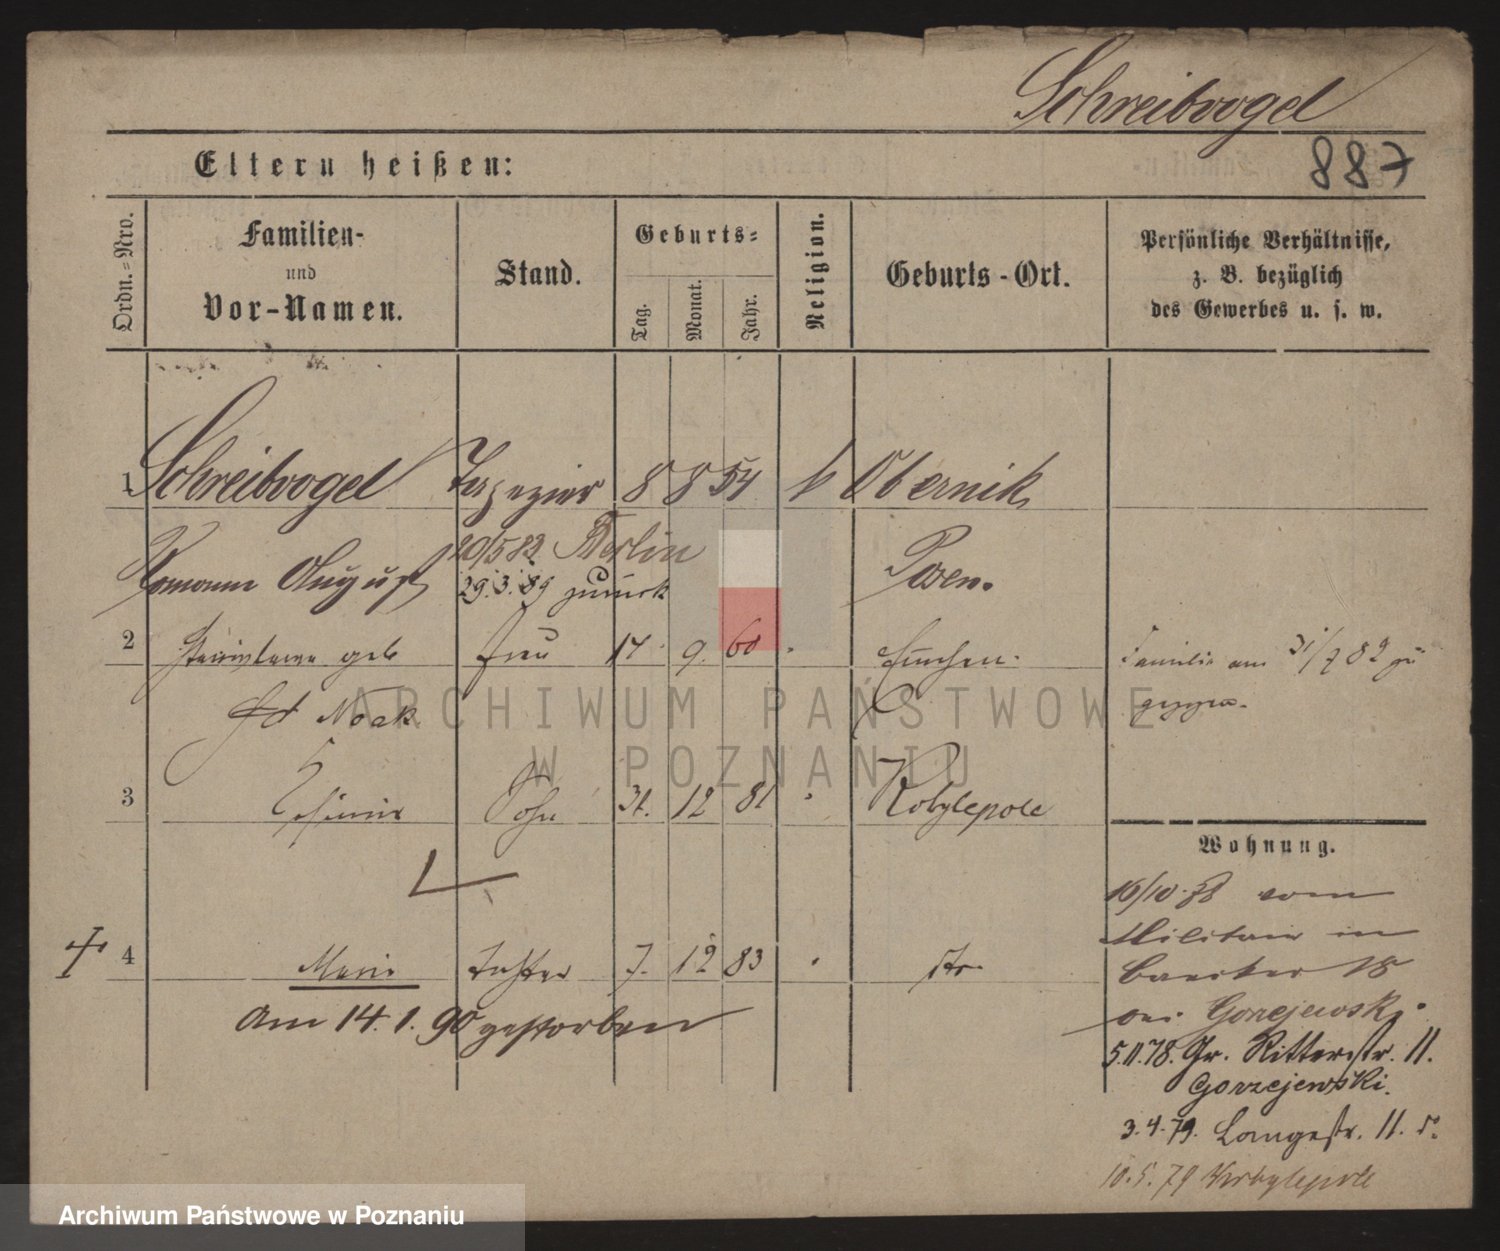 Schreibvogel
887
Eltern heißen:
Ordn.=Nro.
Familien-
und
Vor-Namen.
Stand.
Geburts=
Tag.
Monat.
Jahr.
Religion.
Geburts-Ort.
Persönliche Verhältnisse,
z. B. bezüglich
des Gewerbes u. s. w.
1 Schreibvogel Tapezier 8 8 54 k Obernik
20/5 82 Berlin
Romann August 29.3.89 zurück Posen.
2 geb Frau 17. 9. 60
Familie am 31/7 82 zu
Noak
3 Sohn 31. 12 81 Kobylepole
Wohnung.
16/10. 78 vom
Militair in
4 Marie Tochter 7. 12 83 18
Am 14. 1. 90 gestorben
Gorzejewski.
5.11.78. Gr. Ritterstr. 11.
Gorzejewski.
3.4.79. Langestr. 11.
10.5.79 Kobylepole
ARCHIWUM PAŃSTWOWE
W POZNANIU
Archiwum Państwowe w Poznaniu